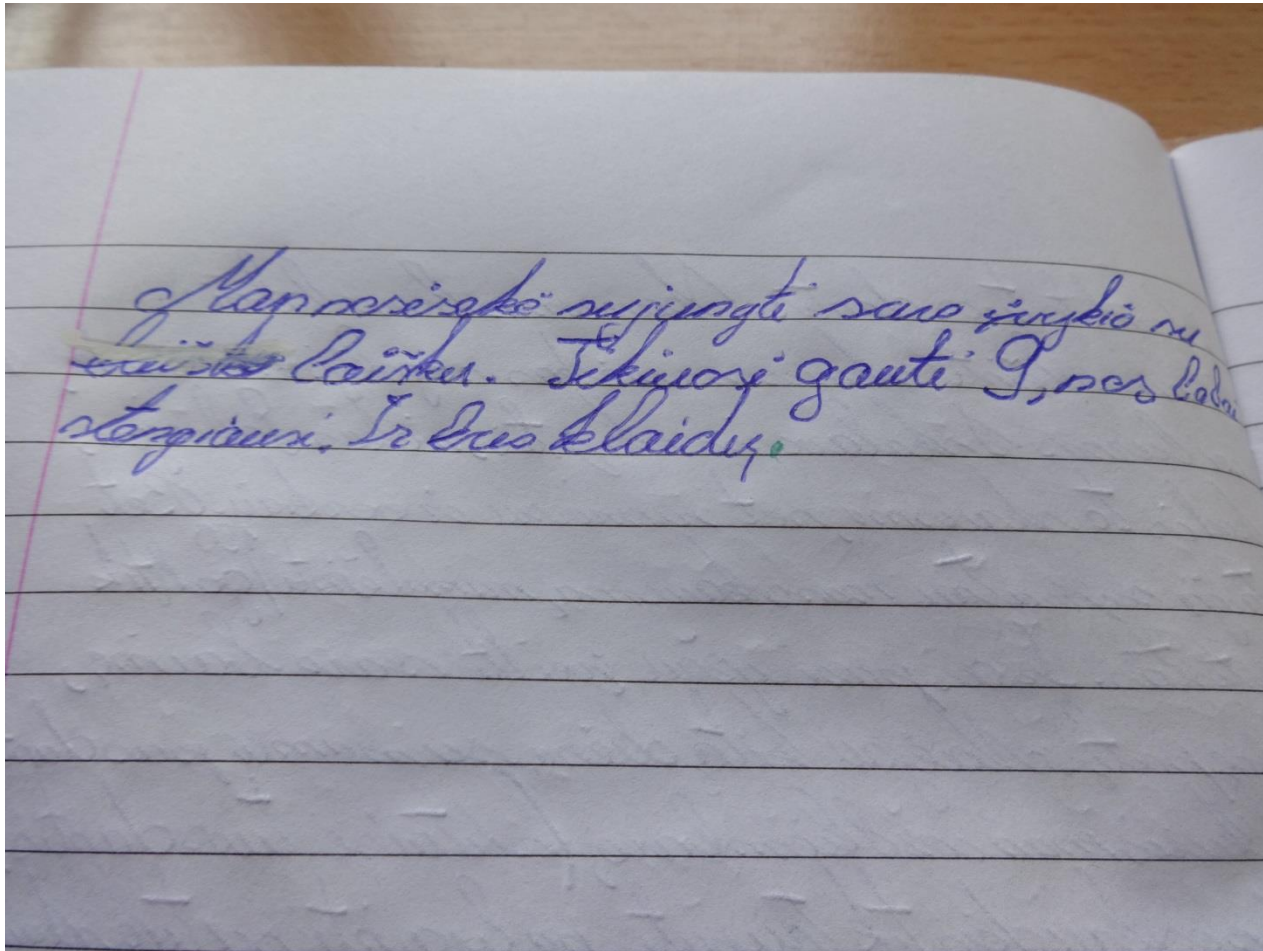 Man nesisekė sujungti savo įvykio su
laišku. Tikiuosi gauti 9, nes labai
stengiausi. Ir bus klaidų.